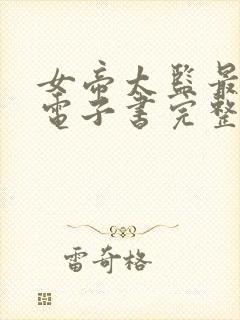 女帝大監最
電子書完整
雷奇格